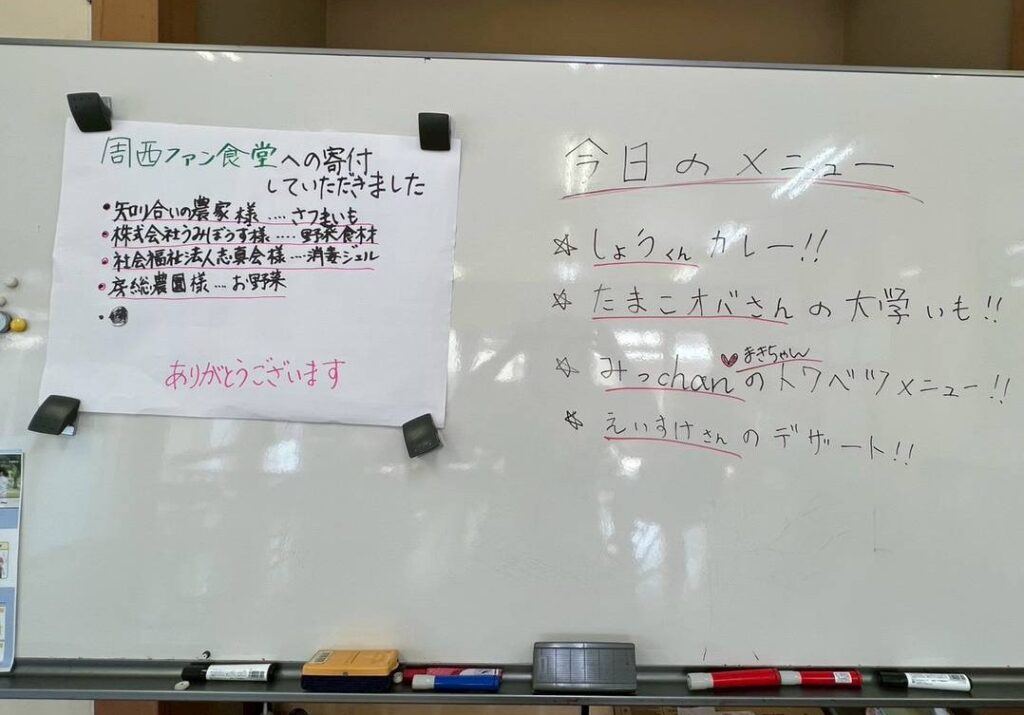 周西ファン食堂への寄付
していただきました
・知り合いの農家様‥‥さつまいも
・株式会社うみぼうず様‥‥‥野菜食材
・社会福祉法人志真会様‥‥消毒ジェル
・房総農園様‥‥お野菜
ありがとうございます
今日のメニュー
☆しょうくんカレー!!
☆たまこオバさんの大学いも!!
まきちゃん
☆みっchan♥のトクベツメニュー!!
☆えいすけさんのデザート!!